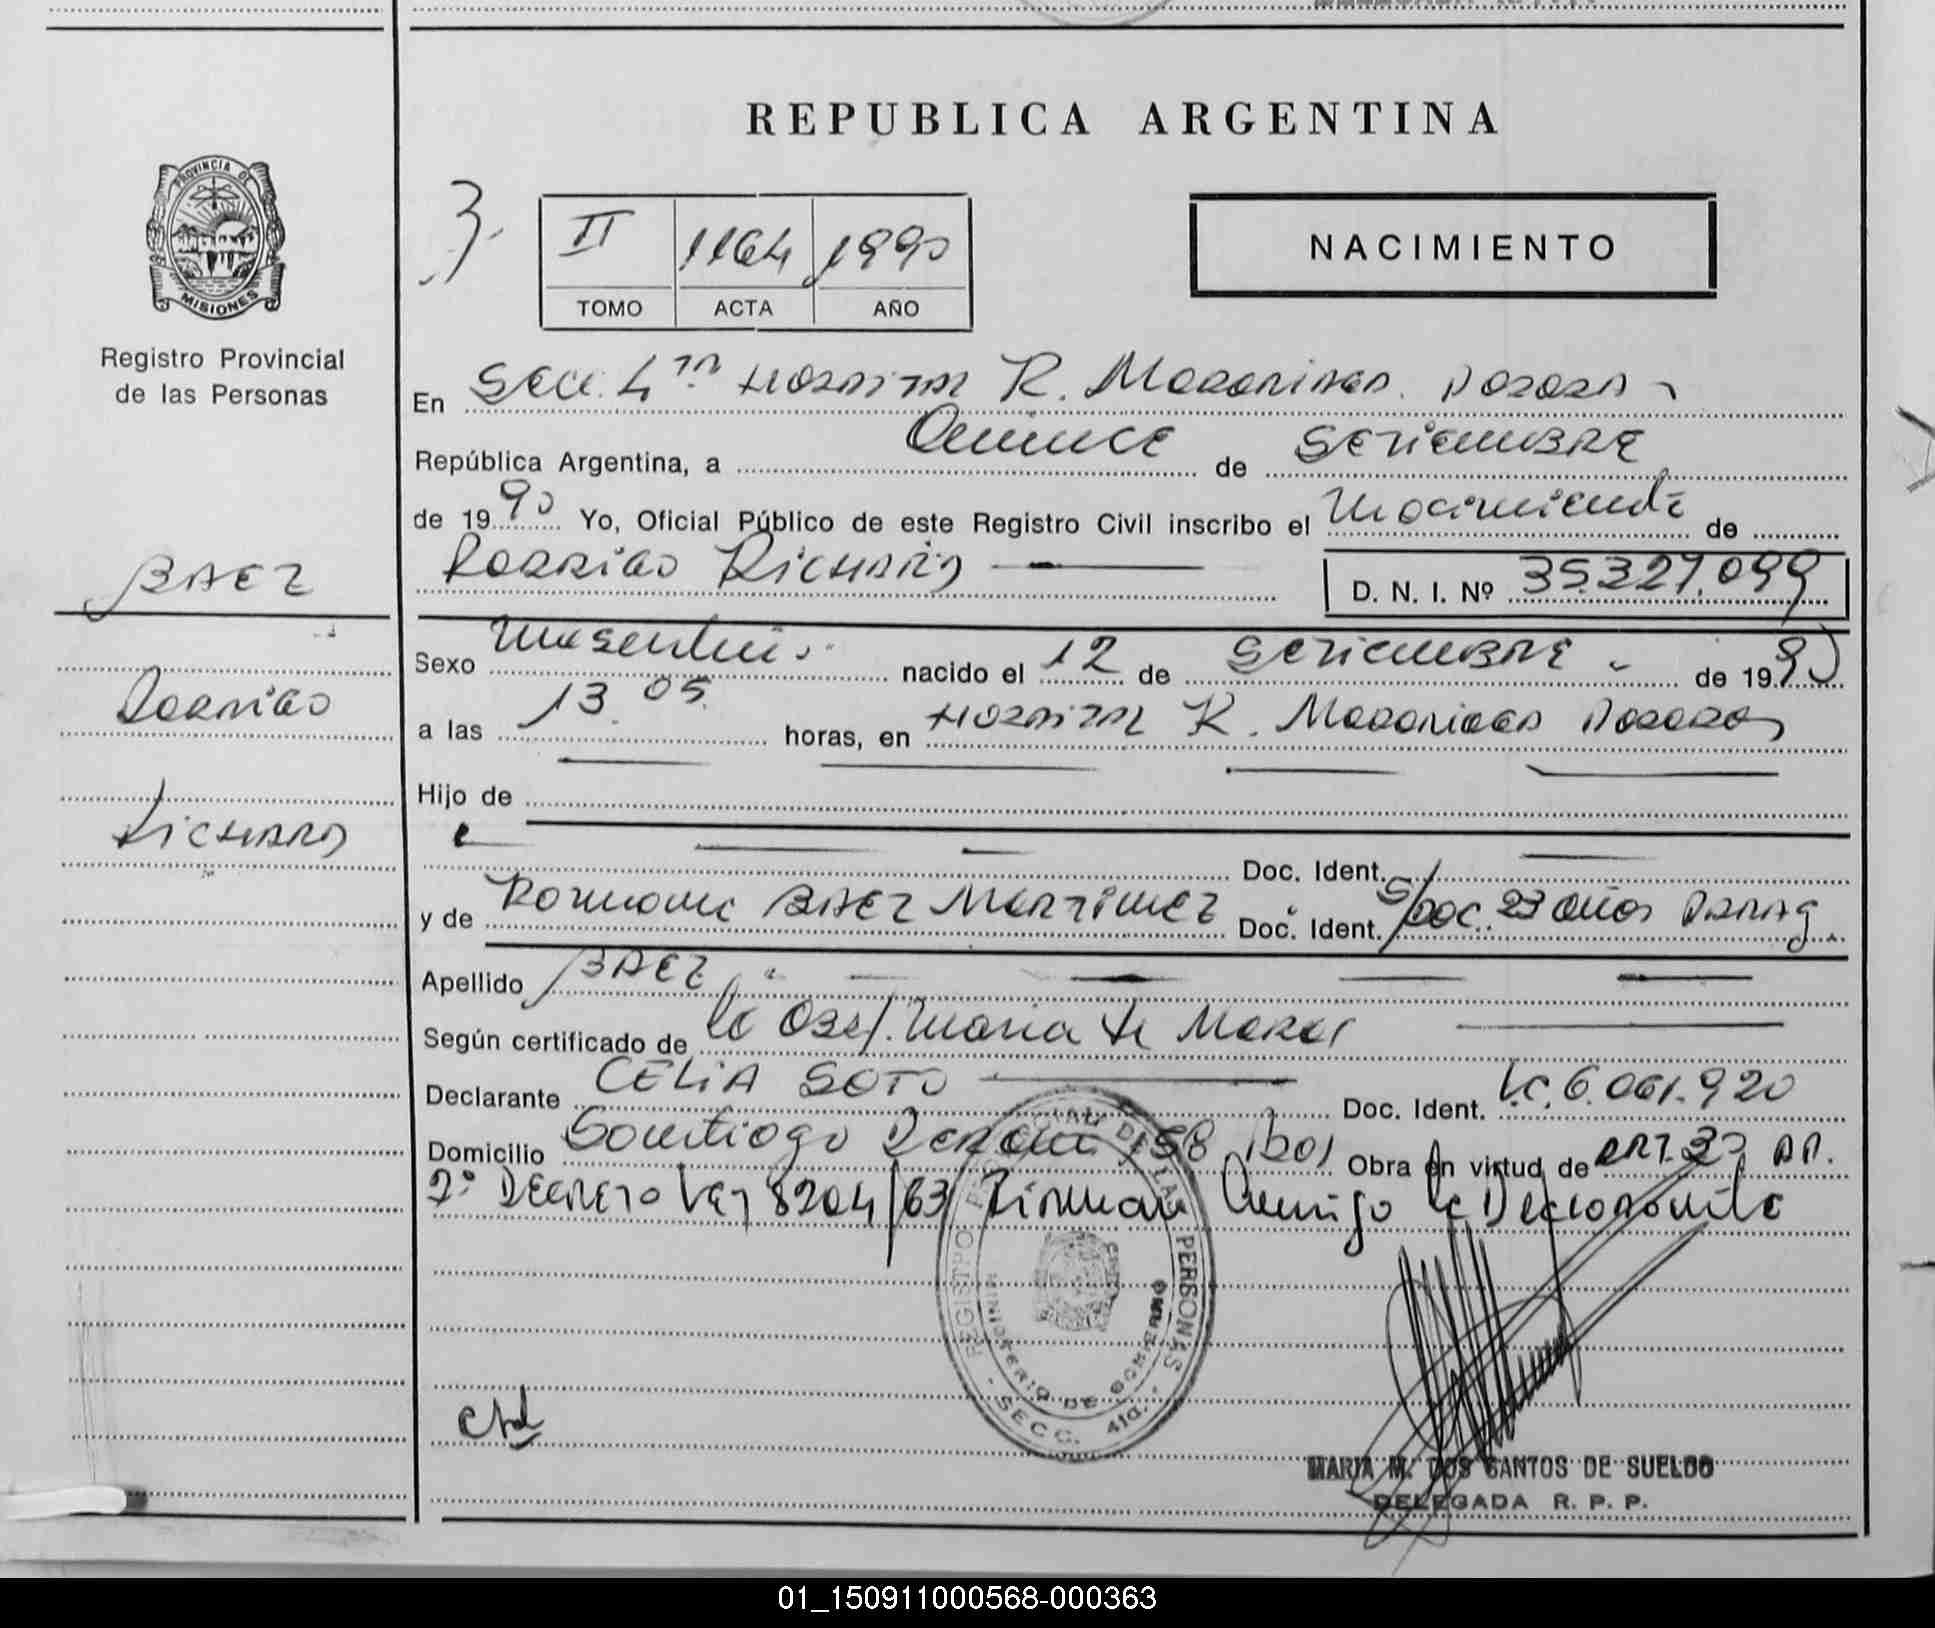 REPUBLICA ARGENTINA
PROVINCIA DE
MISIONES
Registro Provincial
de las Personas
3.
II 1164 1990
TOMO ACTA AÑO
NACIMIENTO
En Secc. 4ta Hospital R. Madariaga. Posadas
República Argentina, a Quince de Setiembre
de 1990 Yo, Oficial Público de este Registro Civil inscribo el Nacimiento de
Rodrigo Richard D. N. I. Nº 35.327.099
BAEZ
Rodrigo
Richard
Sexo Masculino nacido el 12 de Setiembre de 1990
a las 13.05 horas, en Hospital R. Madariaga Posadas
Hijo de
Doc. Ident.
y de BAEZ Martinez Doc. Ident. S/Doc. 23 años Parag.
Apellido BAEZ
Según certificado de la Obst. Maria de
Declarante CELIA SOTO Doc. Ident. L.C. 6.061.920
Domicilio Santiago 158 Obra en virtud de ART. 30 AP.
2º Decreto Ley 8204/63 Firman Conmigo la Declarante
REGISTRO PROVINCIAL DE LAS PERSONAS
MINISTERIO DE GOBIERNO
- SECC. 4ta. -
MARIA M. DOS SANTOS DE SUELDO
DELEGADA R. P. P.
01_150911000568-000363